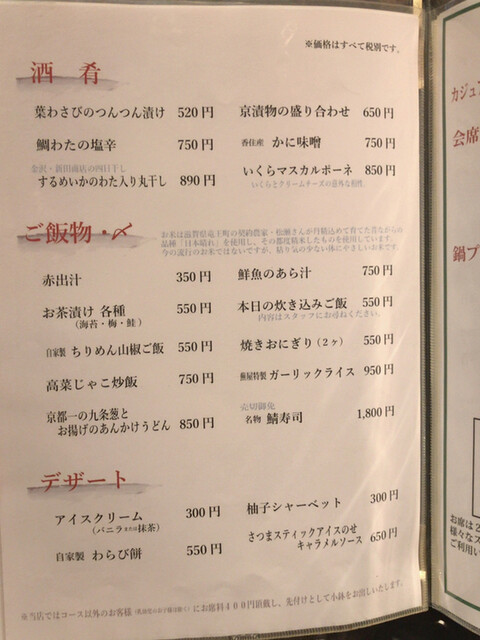 ※価格はすべて税別です。
酒肴
葉わさびのつんつん漬け 520円
京漬物の盛り合わせ 650円
鯛わたの塩辛 750円
香住産 かに味噌 750円
金沢・新田商店の四日干し
するめいかのわた入り丸干し 890円
いくらマスカルポーネ 850円
いくらとクリームチーズの意外な相性
ご飯物・〆
お米は滋賀県竜王町の契約農家・松瀬さんが丹精込めて育てた昔ながらの
品種「日本晴れ」を使用し、その都度精米したものを使用しています。
今の流行のお米ではないですが、粘り気の少ない体にやさしいお米です。
赤出汁 350円
鮮魚のあら汁 750円
お茶漬け 各種 550円
(海苔・梅・鮭)
本日の炊き込みご飯 550円
内容はスタッフにお尋ねください。
自家製 ちりめん山椒ご飯 550円
焼きおにぎり(2ヶ) 550円
高菜じゃこ炒飯 750円
特製 ガーリックライス 950円
京都一の九条葱と
お揚げのあんかけうどん 850円
売切御免
名物 鯖寿司 1,800円
デザート
アイスクリーム 300円
(バニラまたは抹茶)
柚子シャーベット 300円
自家製 わらび餅 550円
さつまスティックアイスのせ
キャラメルソース 650円
※当店ではコース以外のお客様にお席料400円頂戴し、先付けとして小鉢をお出しいたします。
カジュア
会席
鍋プ
お席は2
様々なス
ご利用い